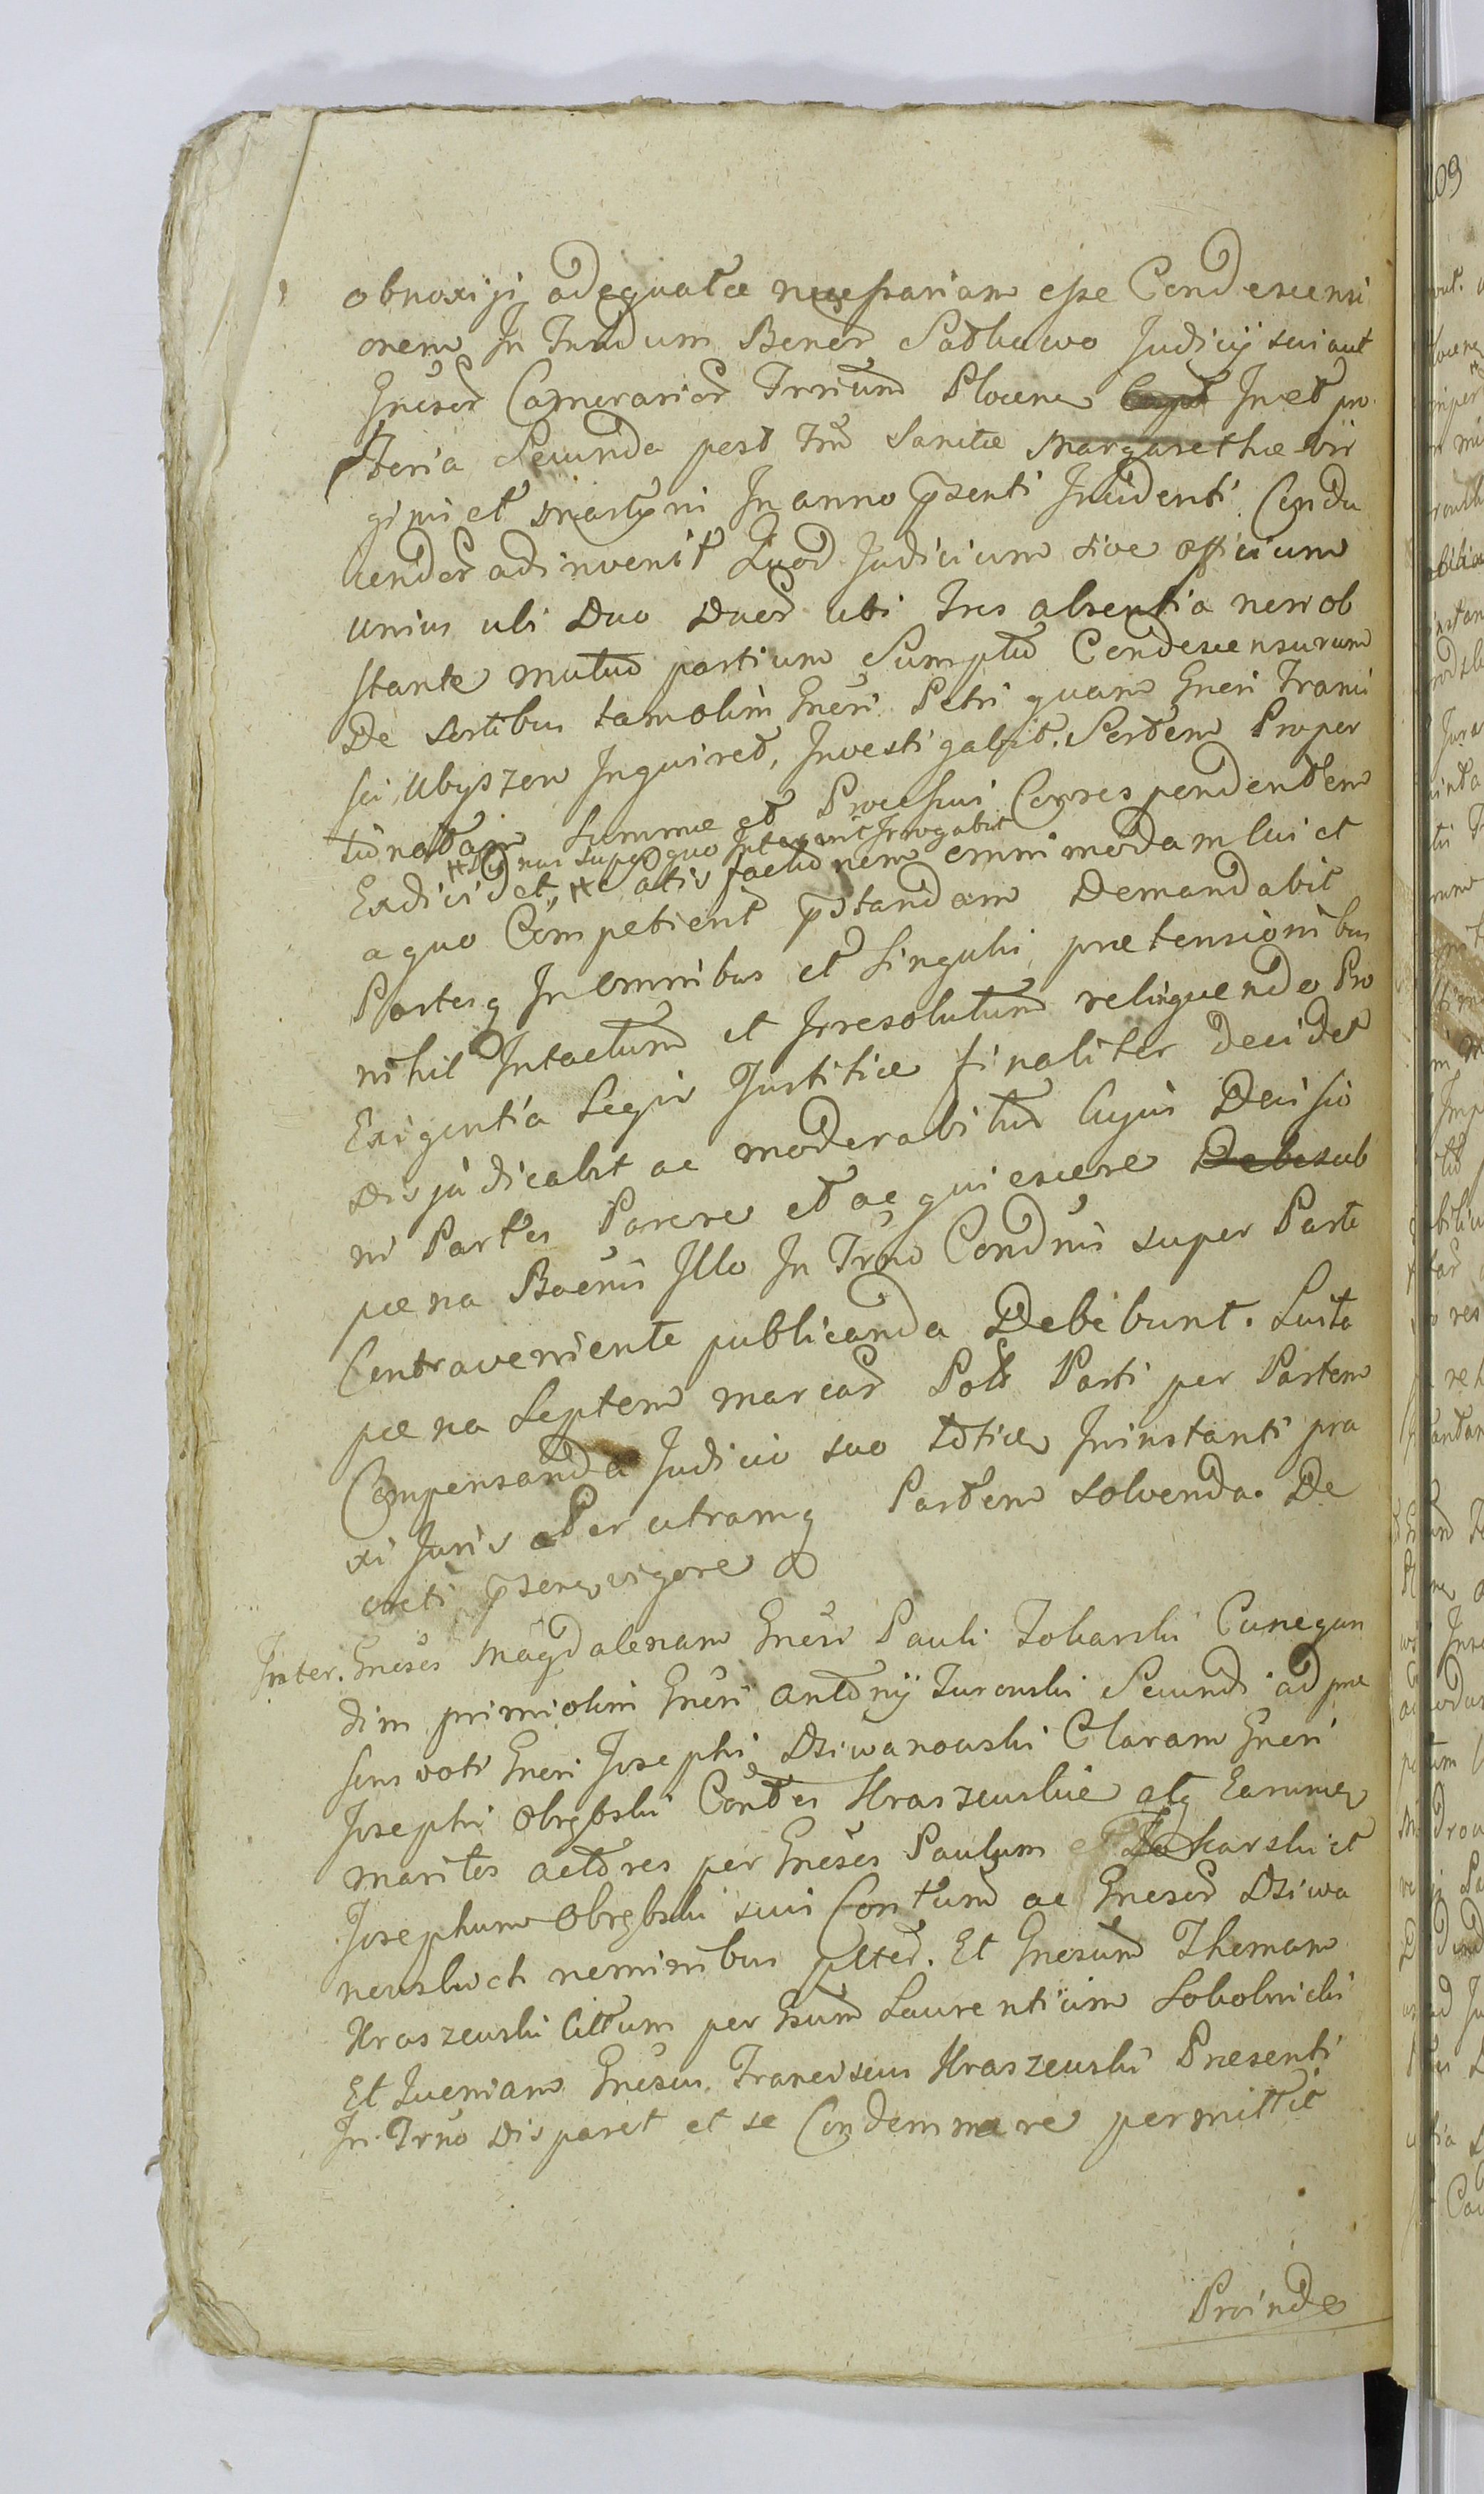 obnoxiji adequatæ necessariam esse Condescensi
onem In Fundum Bonor Sadkowo Judicij sui aut
Gnesor Camerarior Trrium Plocen In et pro
Feria Secunda post Fm Sanctæ Margarethæ Vir
ginis et Martyris In anno psenti Incidenti Condu
cendor adinvenit Quod Judicium sive officium
unius ubi Duo Duor ubi Tres absentia non ob
stante mutuo partium Sumptu Condescensurum
De sortibus tam olim Gnesi Petri quam Gnesi Franci
sci Ubyszow Inquiret, Investigabit. Sortem Propor
tionatam Summæ et Processui Correspondentem
# nus super quo Juterunt Irrogabit
Exdividet, # Satisfactionem omnimodam cui et
a quo Competierit pstandam Demandabit
Partesq In omnibus et singulis prætensionibus
nihil Intactum et Irresolutum relinquendo Pro
Exigentia Legis Justitiæ finaliter Decidet
Disjudicabit ac moderabitur Cujus Decisio
ni Partes Parere et acquiescere Debe sub
pæna Baenis Illo In Trno Condnis super Parte
Contraveniente publicanda Debebunt. Luita
pæna Septem marcar Pols Parti per Partem
Compensanda Judicio suo totice In instanti pra
xi Juris Per utramq Partem solvenda. De
creti psens vigore
Inter. Gnesos Magdalenam Gnesi Pauli Tokarski Cunegun
dim primi olim Gnesi Antonij Turowski Secundi ad præ
sens voti Gnesi Josephi Dziwanowski Claram Gnesi
Josephi Obrębski Contes Kraszewskie atq Earum
maritos actores per Gnesos Paulum Tokarski et
Josephum Obrębski sui Contum ac Gnesor Dziwa
nowskich nominibus pltes. Et Gnesum Thomam
Kraszewski Citum per Gsum Laurentium Sokolnicki
Et Quoniam Gnesus Franciscus Kraszewski Præsenti
In Trno Disparet et se Condemnare permittit
Proinde